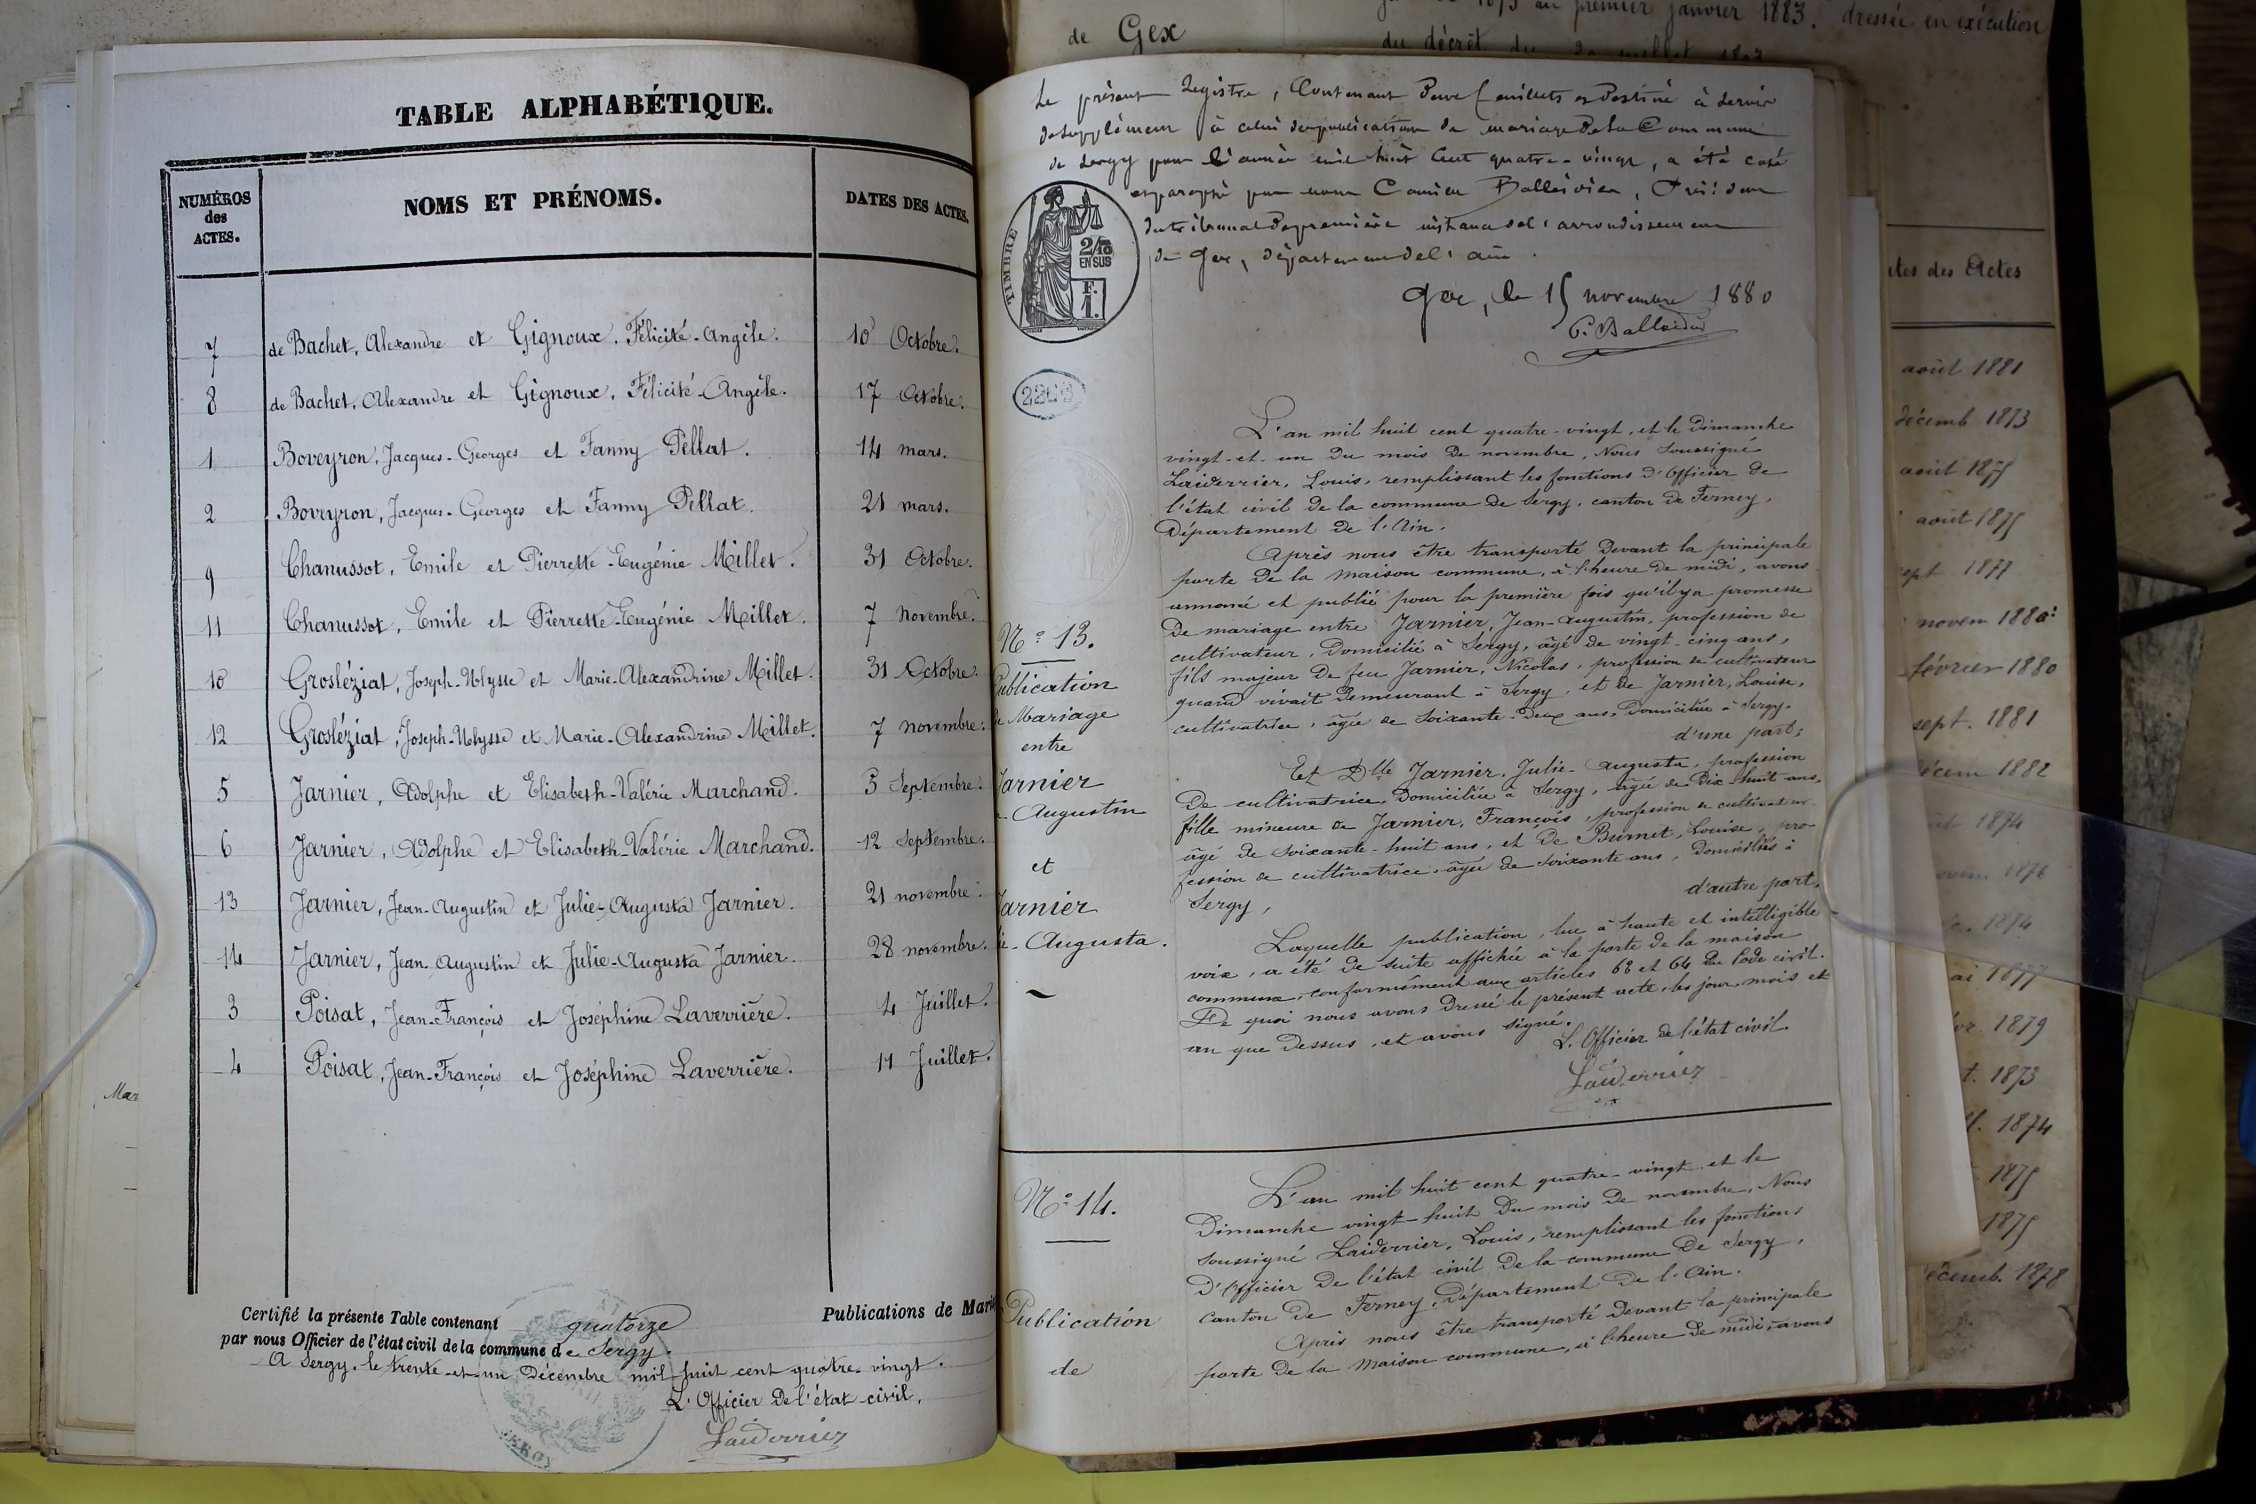 de Gex
au premier janvier 1883. dressée en exécution
du décret du
TABLE ALPHABÉTIQUE.
NUMÉROS des ACTES. NOMS ET PRÉNOMS. DATES DES ACTES.
7 de Bachet, Alexandre et Gignoux, Félicité-Angèle. 10 Octobre.
8 de Bachet, Alexandre et Gignoux, Félicité-Angèle. 17 Octobre.
1 Boveyron, Jacques-Georges et Fanny Pellat. 14 mars.
2 Boveyron, Jacques-Georges et Fanny Pellat. 21 mars.
9 Chanussot, Emile et Pierrette-Eugénie Millet. 31 Octobre.
11 Chanussot, Emile et Pierrette-Eugénie Millet. 7 novembre.
10 Grosléziat, Joseph-Ulysse et Marie-Alexandrine Millet. 31 Octobre.
12 Grosléziat, Joseph-Ulysse et Marie-Alexandrine Millet. 7 novembre.
5 Jarnier, Adolphe et Elisabeth-Valérie Marchand. 5 Septembre.
6 Jarnier, Adolphe et Elisabeth-Valérie Marchand. 12 Septembre.
13 Jarnier, Jean-Augustin et Julie-Augusta Jarnier. 21 novembre.
14 Jarnier, Jean-Augustin et Julie-Augusta Jarnier. 28 novembre.
3 Poisat, Jean-François et Joséphine Laverrière. 4 Juillet.
4 Poisat, Jean-François et Joséphine Laverrière. 11 Juillet.
Certifié la présente Table contenant quatorze Publications de Mari
par nous Officier de l'état civil de la commune de Sergy.
A Sergy, le trente-et-un Décembre mil huit cent quatre-vingt.
L'Officier de l'état-civil,
Laiderrier
SERGY
Mar
Le présent Registre, Contenant deux feuillets et destiné à servir
de supplément à celui des publications de mariage de la Commune
de Sergy pour l'année mil huit cent quatre-vingt, a été coté
et paraphé par nous Président
du tribunal de première instance de l'arrondissement
de Gex, département de l'ain.
Gex, le 15 novembre 1880
TIMBRE
2/10 EN SUS
F. 1.
L'an mil huit cent quatre-vingt, et le Dimanche
vingt-et-un du mois de novembre, Nous soussigné
Laiderrier, Louis, remplissant les fonctions d'Officier de
l'état civil de la commune de Sergy, canton de Ferney,
Département de l'Ain.
Après nous être transporté devant la principale
porte de la maison commune, à l'heure de midi, avons
annoncé et publié pour la première fois qu'il y a promesse
de mariage entre Jarnier, Jean-Augustin, profession de
cultivateur, domicilié à Sergy, âgé de vingt-cinq ans,
fils majeur de feu Jarnier, Nicolas, profession de cultivateur
quand vivait demeurant à Sergy, et de Jarnier, Louise,
cultivatrice, âgée de soixante-deux ans, domiciliée à Sergy.
d'une part;
Et Dlle Jarnier, Julie-Augusta, profession
de cultivatrice, domiciliée à Sergy, âgée de dix-huit ans,
fille mineure de Jarnier, François, profession de cultivateur
âgé de soixante-huit ans, et de Burnet, Louise, pro-
fession de cultivatrice, âgée de soixante ans, domiciliés à
Sergy, d'autre part,
Laquelle publication, lue à haute et intelligible
voix, a été de suite affichée à la porte de la maison
commune, conformément aux articles 63 et 64 du Code civil.
De quoi nous avons dressé le présent acte, les jour, mois et
an que dessus, et avons signé.
L'Officier de l'état civil
Laiderrier
N° 13.
Publication
de Mariage
entre
Jarnier
Augustin
et
Jarnier
Augusta.
N° 14.
Publication
de
L'an mil huit cent quatre-vingt et le
Dimanche vingt-huit du mois de novembre, Nous
soussigné Laiderrier, Louis, remplissant les fonctions
d'Officier de l'état civil de la commune de Sergy,
canton de Ferney, Département de l'Ain.
Après nous être transporté devant la principale
porte de la maison commune, à l'heure de midi, avons
tes des Actes
août 1881
décemb 1873
août 1875
août 1875
sept 1877
novem 1880
février 1880
sept. 1881
décem 1882
1874
1876
1874
ai 1877
1879
t. 1873
1874
1875
1875
décemb. 1878